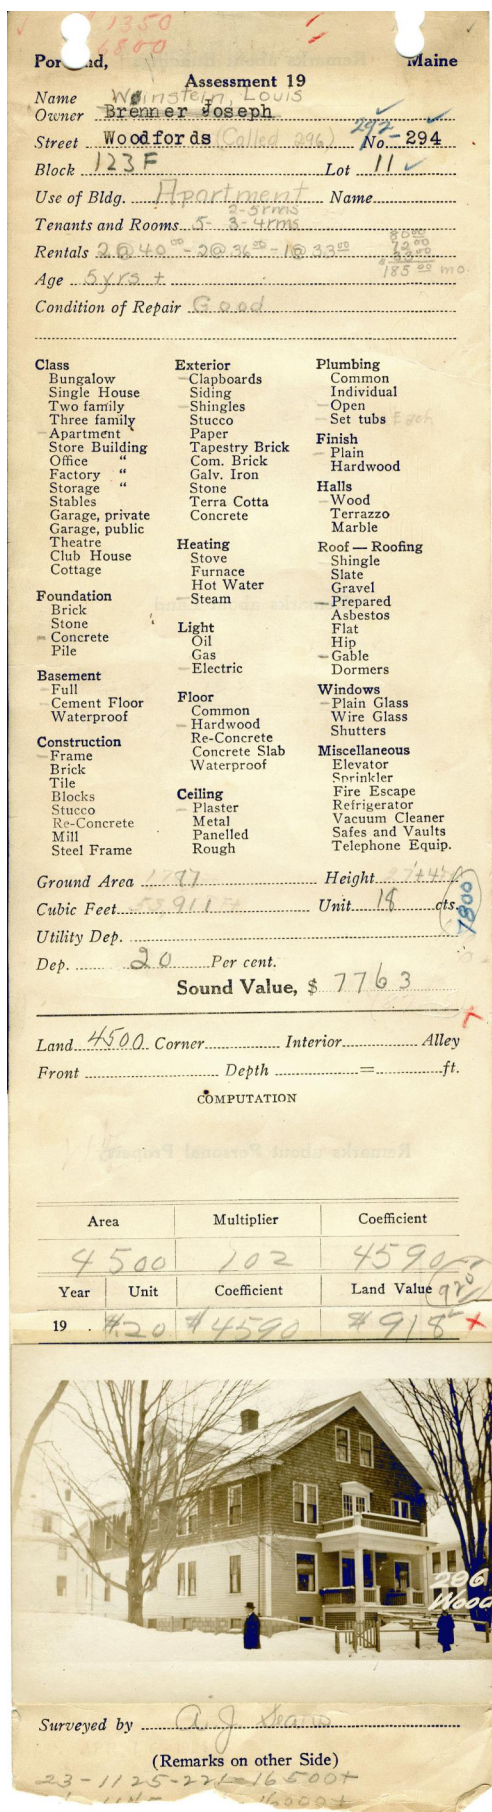 1350
6800
Portland, Maine
Assessment 19
Name Weinstein, Louis
Owner Brenner Joseph
Street Woodfords (Called 296) 292 No. - 294
Block 123F Lot 11
Use of Bldg. Apartment Name
2-5rms
Tenants and Rooms 5- 3-4rms
Rentals 2@40.00 - 2@36.00 - 1@33.00
80.00
72.00
33.00
185.00 mo.
Age 5yrs +
Condition of Repair Good
Class
Bungalow
Single House
Two family
Three family
Apartment
Store Building
Office "
Factory "
Storage "
Stables
Garage, private
Garage, public
Theatre
Club House
Cottage
Foundation
Brick
Stone
Concrete
Pile
Basement
Full
Cement Floor
Waterproof
Construction
Frame
Brick
Tile
Blocks
Stucco
Re-Concrete
Mill
Steel Frame
Exterior
Clapboards
Siding
Shingles
Stucco
Paper
Tapestry Brick
Com. Brick
Galv. Iron
Stone
Terra Cotta
Concrete
Heating
Stove
Furnace
Hot Water
Steam
Light
Oil
Gas
Electric
Floor
Common
Hardwood
Re-Concrete
Concrete Slab
Waterproof
Ceiling
Plaster
Metal
Panelled
Rough
Plumbing
Common
Individual
Open
Set tubs Each
Finish
Plain
Hardwood
Halls
Wood
Terrazzo
Marble
Roof — Roofing
Shingle
Slate
Gravel
Prepared
Asbestos
Flat
Hip
Gable
Dormers
Windows
Plain Glass
Wire Glass
Shutters
Miscellaneous
Elevator
Sprinkler
Fire Escape
Refrigerator
Vacuum Cleaner
Safes and Vaults
Telephone Equip.
Ground Area Height
Cubic Feet 53,911 Unit 18 cts.
7800
Utility Dep.
Dep. 20 Per cent.
Sound Value, $ 7763
Land 4500 Corner Interior Alley
Front Depth = ft.
COMPUTATION
Remarks about Personal Property
Area Multiplier Coefficient
4500 102 4590
Year Unit Coefficient Land Value 920
19 . #.20 $4590 $918
296
Wood
Surveyed by A. J. Sears
(Remarks on other Side)
23-1125-221=16500+
16000+